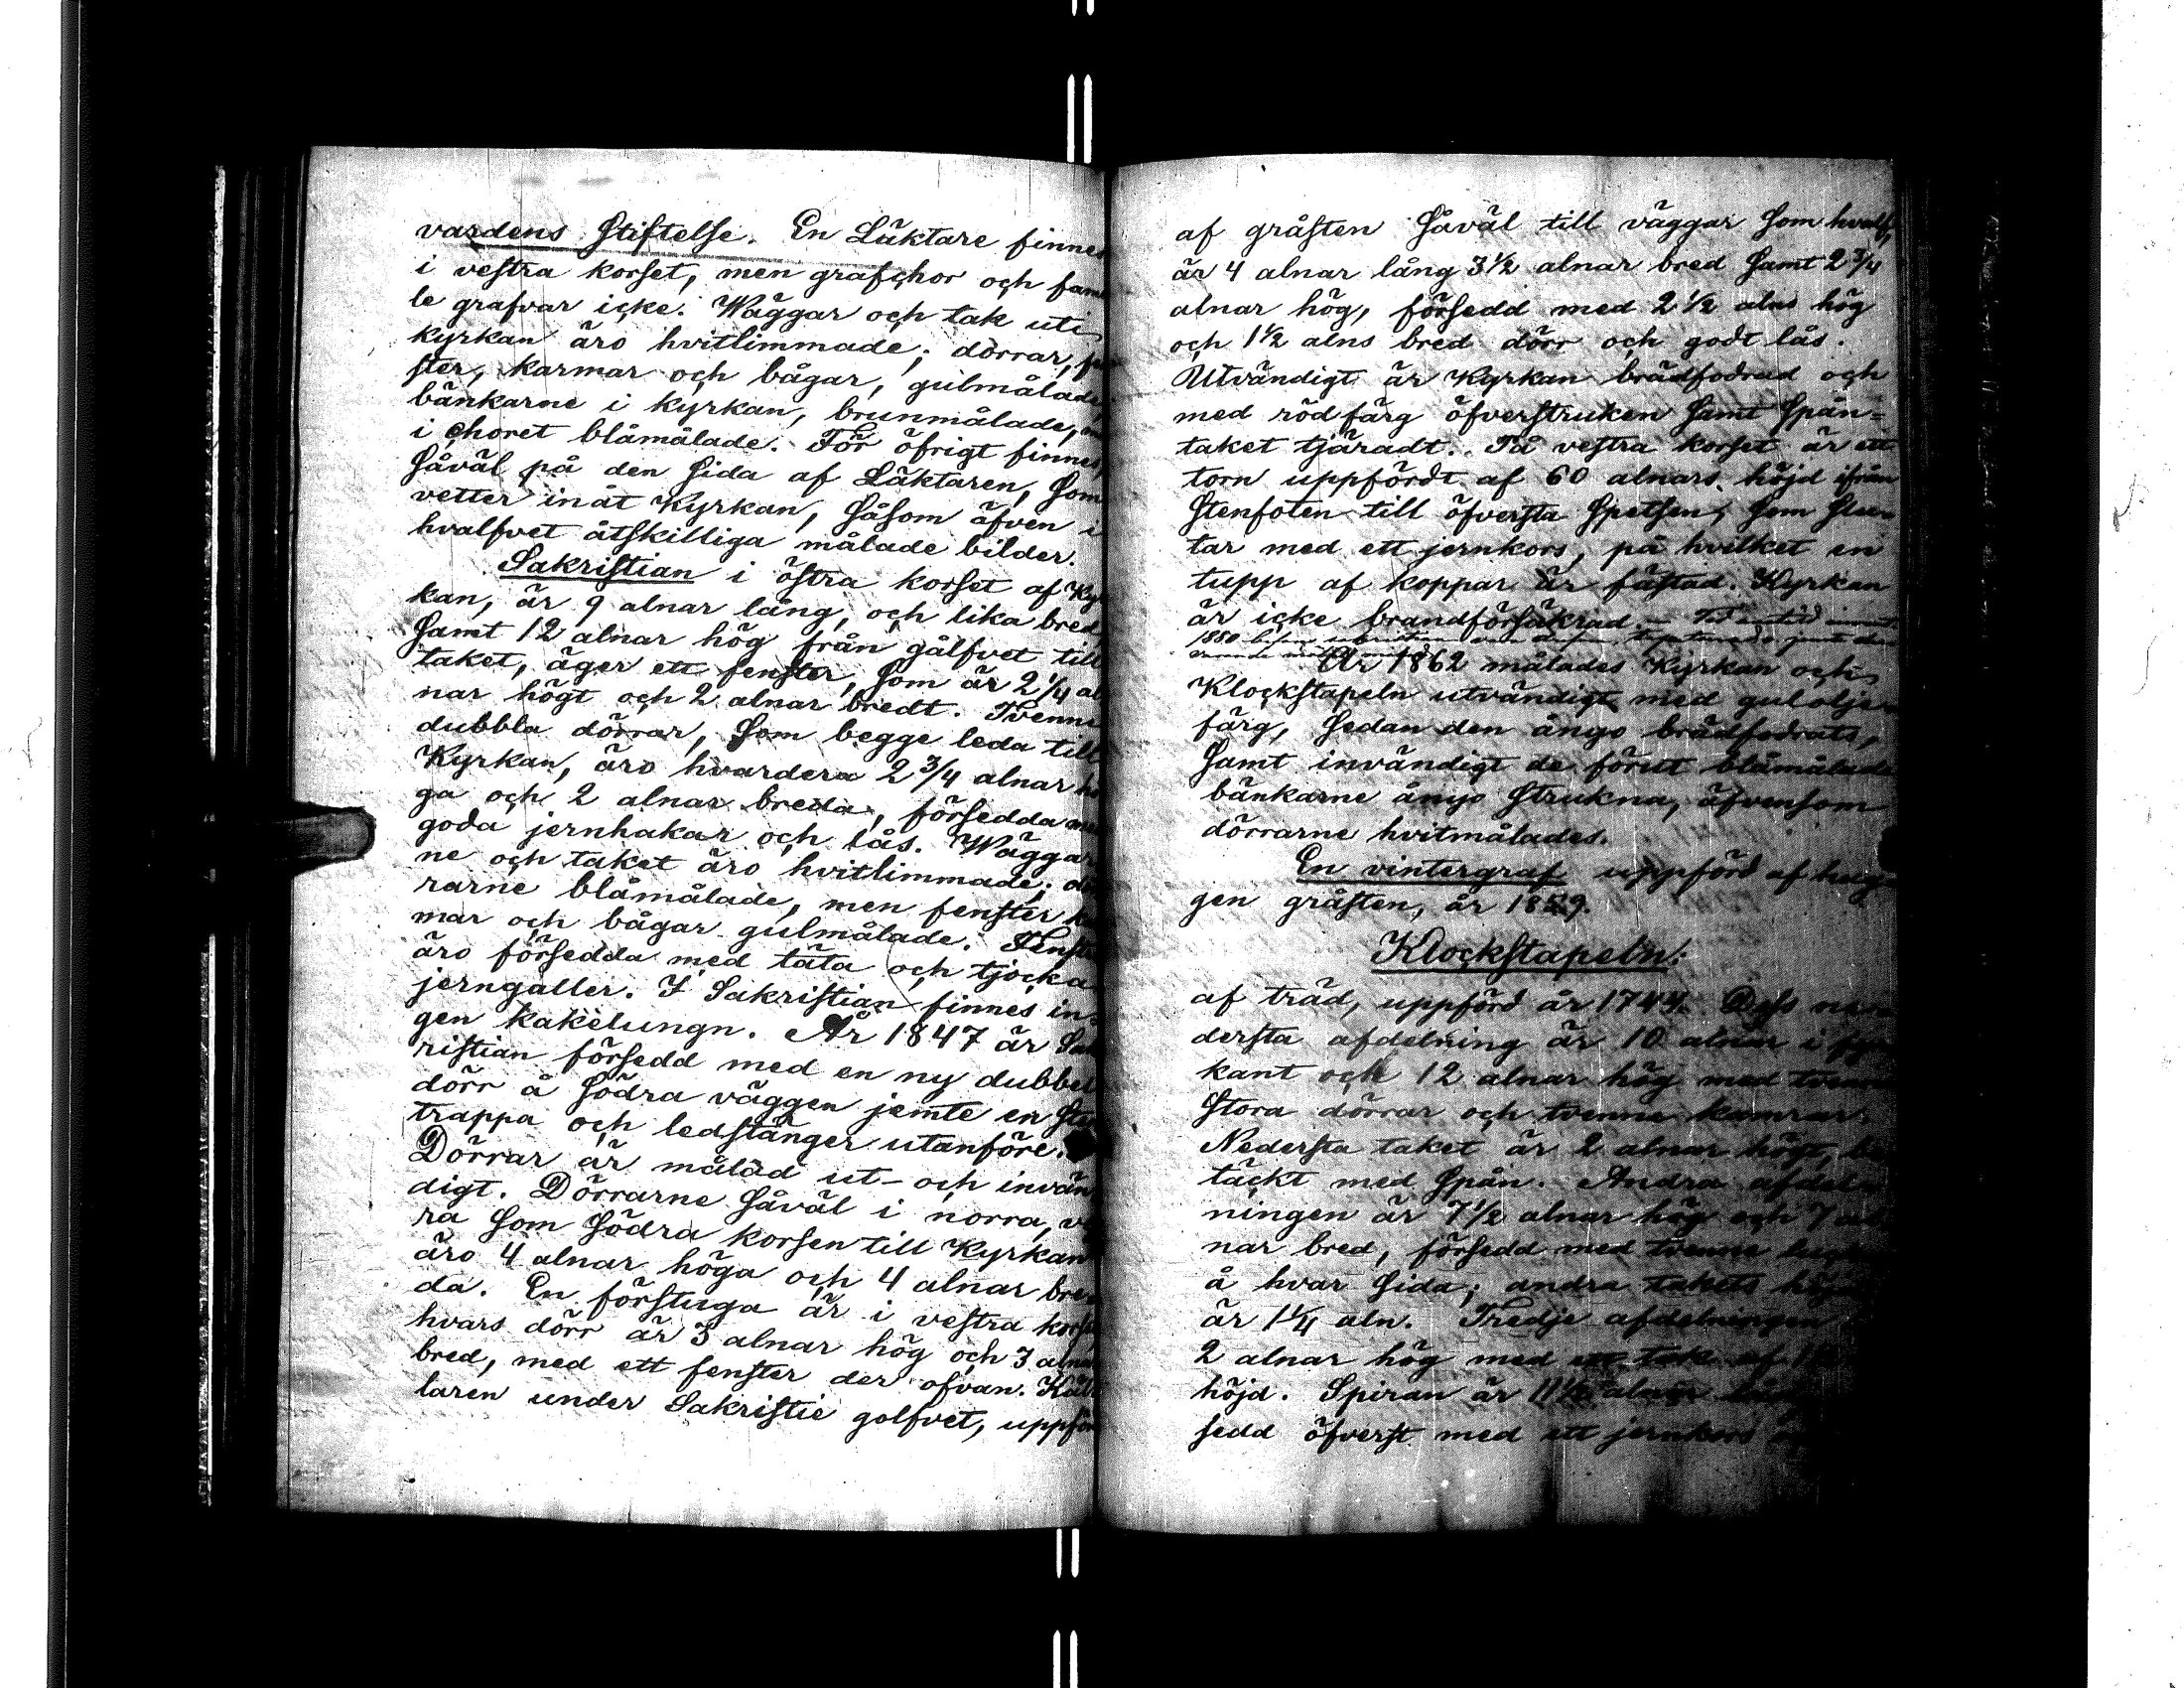 vardens Stiftelse. En Läktare finnes
i vestra korset, men grafchor och fam
le grafvar icke. Wäggar och tak uti
kyrkan äro hvitlimmade; dörrar,
ster, karmar och bågar, gulmålade,
bänkarne i kyrkan, brunmålade,
i choret blåmålade. För öfrigt finnes,
såväl på den sida af Läktaren, som
vetter inåt Kyrkan, såsom äfven i
hvalfvet åtskilliga målade bilder.
Sakristian i östra korset af Kyr
kan, är 9 alnar lång, och lika bred
samt 12 alnar hög från gålfvet till
taket, äger ett fenster, som är 2 1/4 al
nar högt och 2 alnar bredt. Tvenne
dubbla dörrar, som begge leda till
Kyrkan, äro hvardera 2 3/4 alnar hö
ga och 2 alnar breda, försedda med
goda jernhakar och lås. Wäggar
ne och taket äro hvitlimmade; dör
rarne blåmålade, men fenster kar
mar och bågar gulmålade. Fenstr
äro försedda med täta och tjocka
jerngaller. I Sakristian finnes in-
gen kakelungn. År 1847 är Sak
ristian försedd med en ny dubbel
dörr å södra väggen jemte en sten
trappa och ledstänger utanföre.
Dörrar är målad ut- och invän
digt. Dörrarne såväl i norra, ve
ra som södra korsen till Kyrkan
äro 4 alnar höga och 4 alnar bre
da. En förstuga är i vestra korset,
hvars dörr är 3 alnar hög och 3 alnar
bred, med ett fenster der ofvan. Käl
laren under Sakristie golfvet, uppför
af gråsten såväl till väggar som hvalf,
är 4 alnar lång 3 1/2 alnar bred samt 2 3/4
alnar hög, försedd med 2 1/2 alns hög
och 1 1/2 alns bred dörr och godt lås.
Utvändigt är Kyrkan brädfodrad och
med rödfärg öfverstruken samt spån-
taket tjäradt. På vestra korset är ett
torn uppfördt af 60 alnars höjd ifrån
Stenfoten till öfversta Spetsen, som slu
tar med ett jernkors, på hvilket en
tupp af koppar är fästad. Kyrkan
är icke brandförsäkrad.
1850
År 1862 målades Kyrkan och
Klockstapeln utvändigt med gul olje
färg, sedan den ånyo brädfodrats,
samt invändigt de förut blåmålade
bänkarne ånyo strukna, äfvensom
dörrarne hvitmålades.
En vintergraf uppförd af hug
gen gråsten, år 1859.
Klockstapeln:
af träd, uppförd år 1744. Dess ne
dersta afdelning är 10 alnar i fyr
kant och 12 alnar hög med tvenne
stora dörrar och tvenne kamrar.
Nedersta taket är 2 alnar högt, be
täckt med spån. Andra afdel
ningen är 7 1/2 alnar hög och 7 al
nar bred, försedd med tvenne
å hvar sida; andra takets
är 1 1/4 aln. Tredje afdelningen
2 alnar hög med ett tak af
höjd. Spiran är 11 1/2 alnar
sedd öfverst med ett jernkors